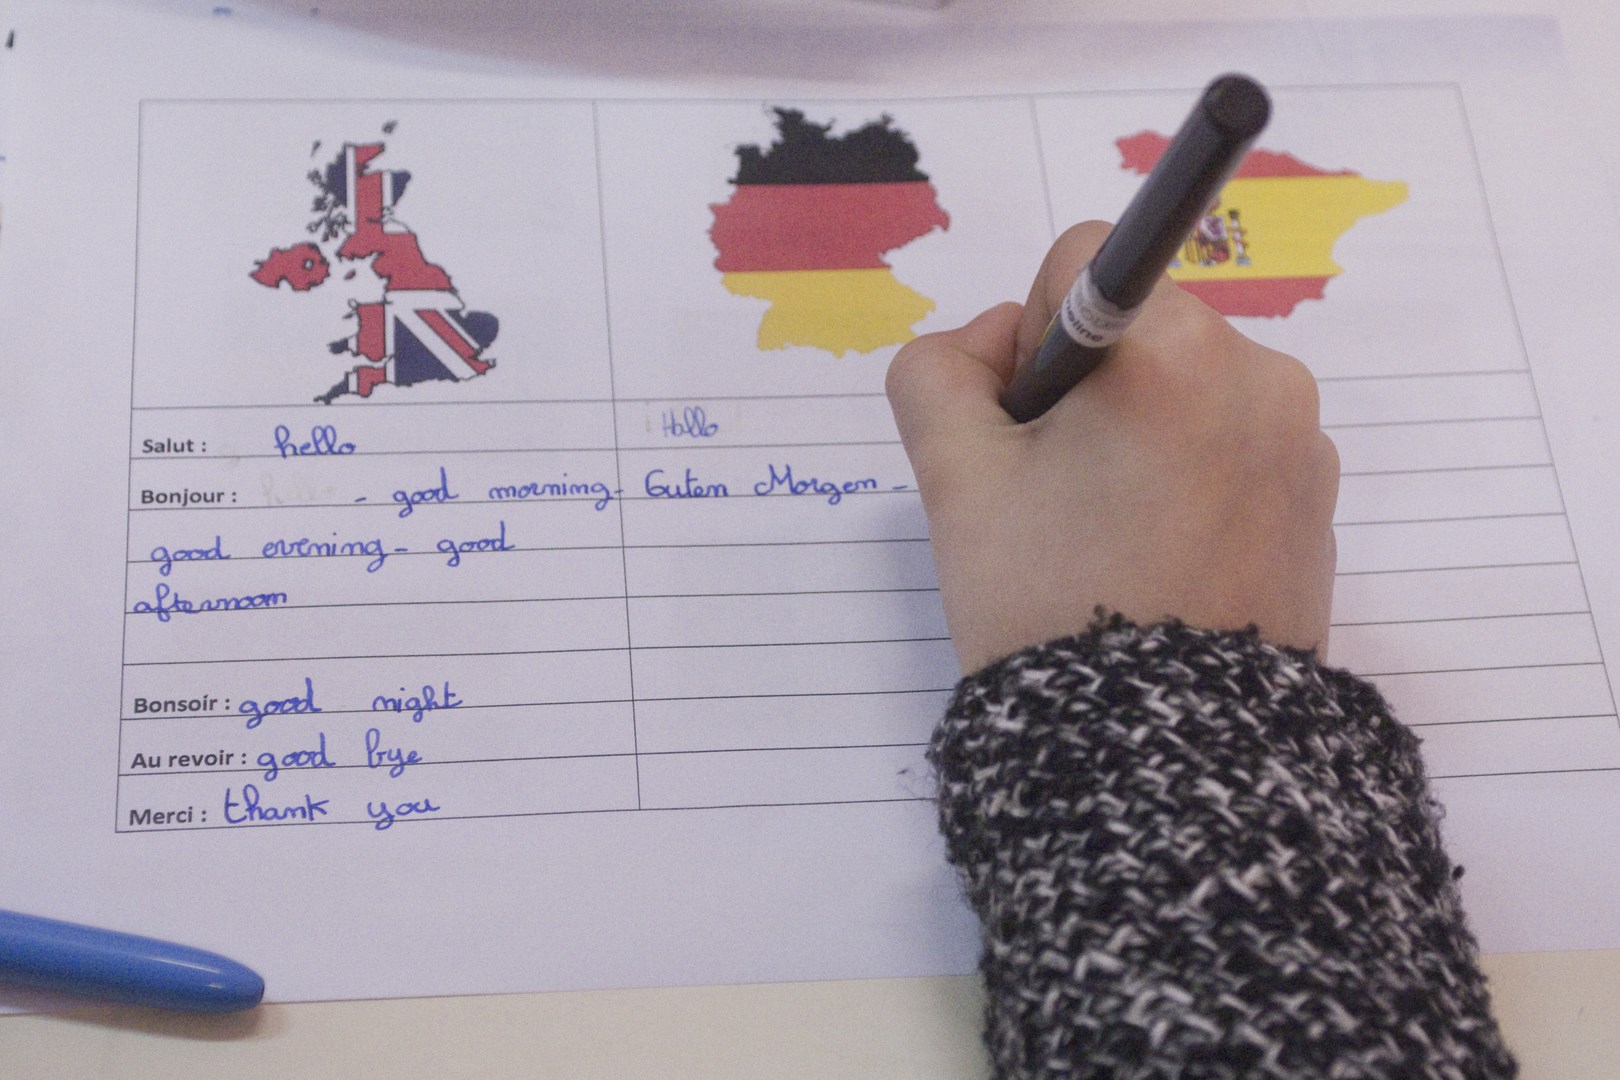 Salut : hello
Hallo
Bonjour : - good morning- Guten Morgen -
good evening - good
afternoon
Bonsoir : good night
Au revoir : good bye
Merci : thank you